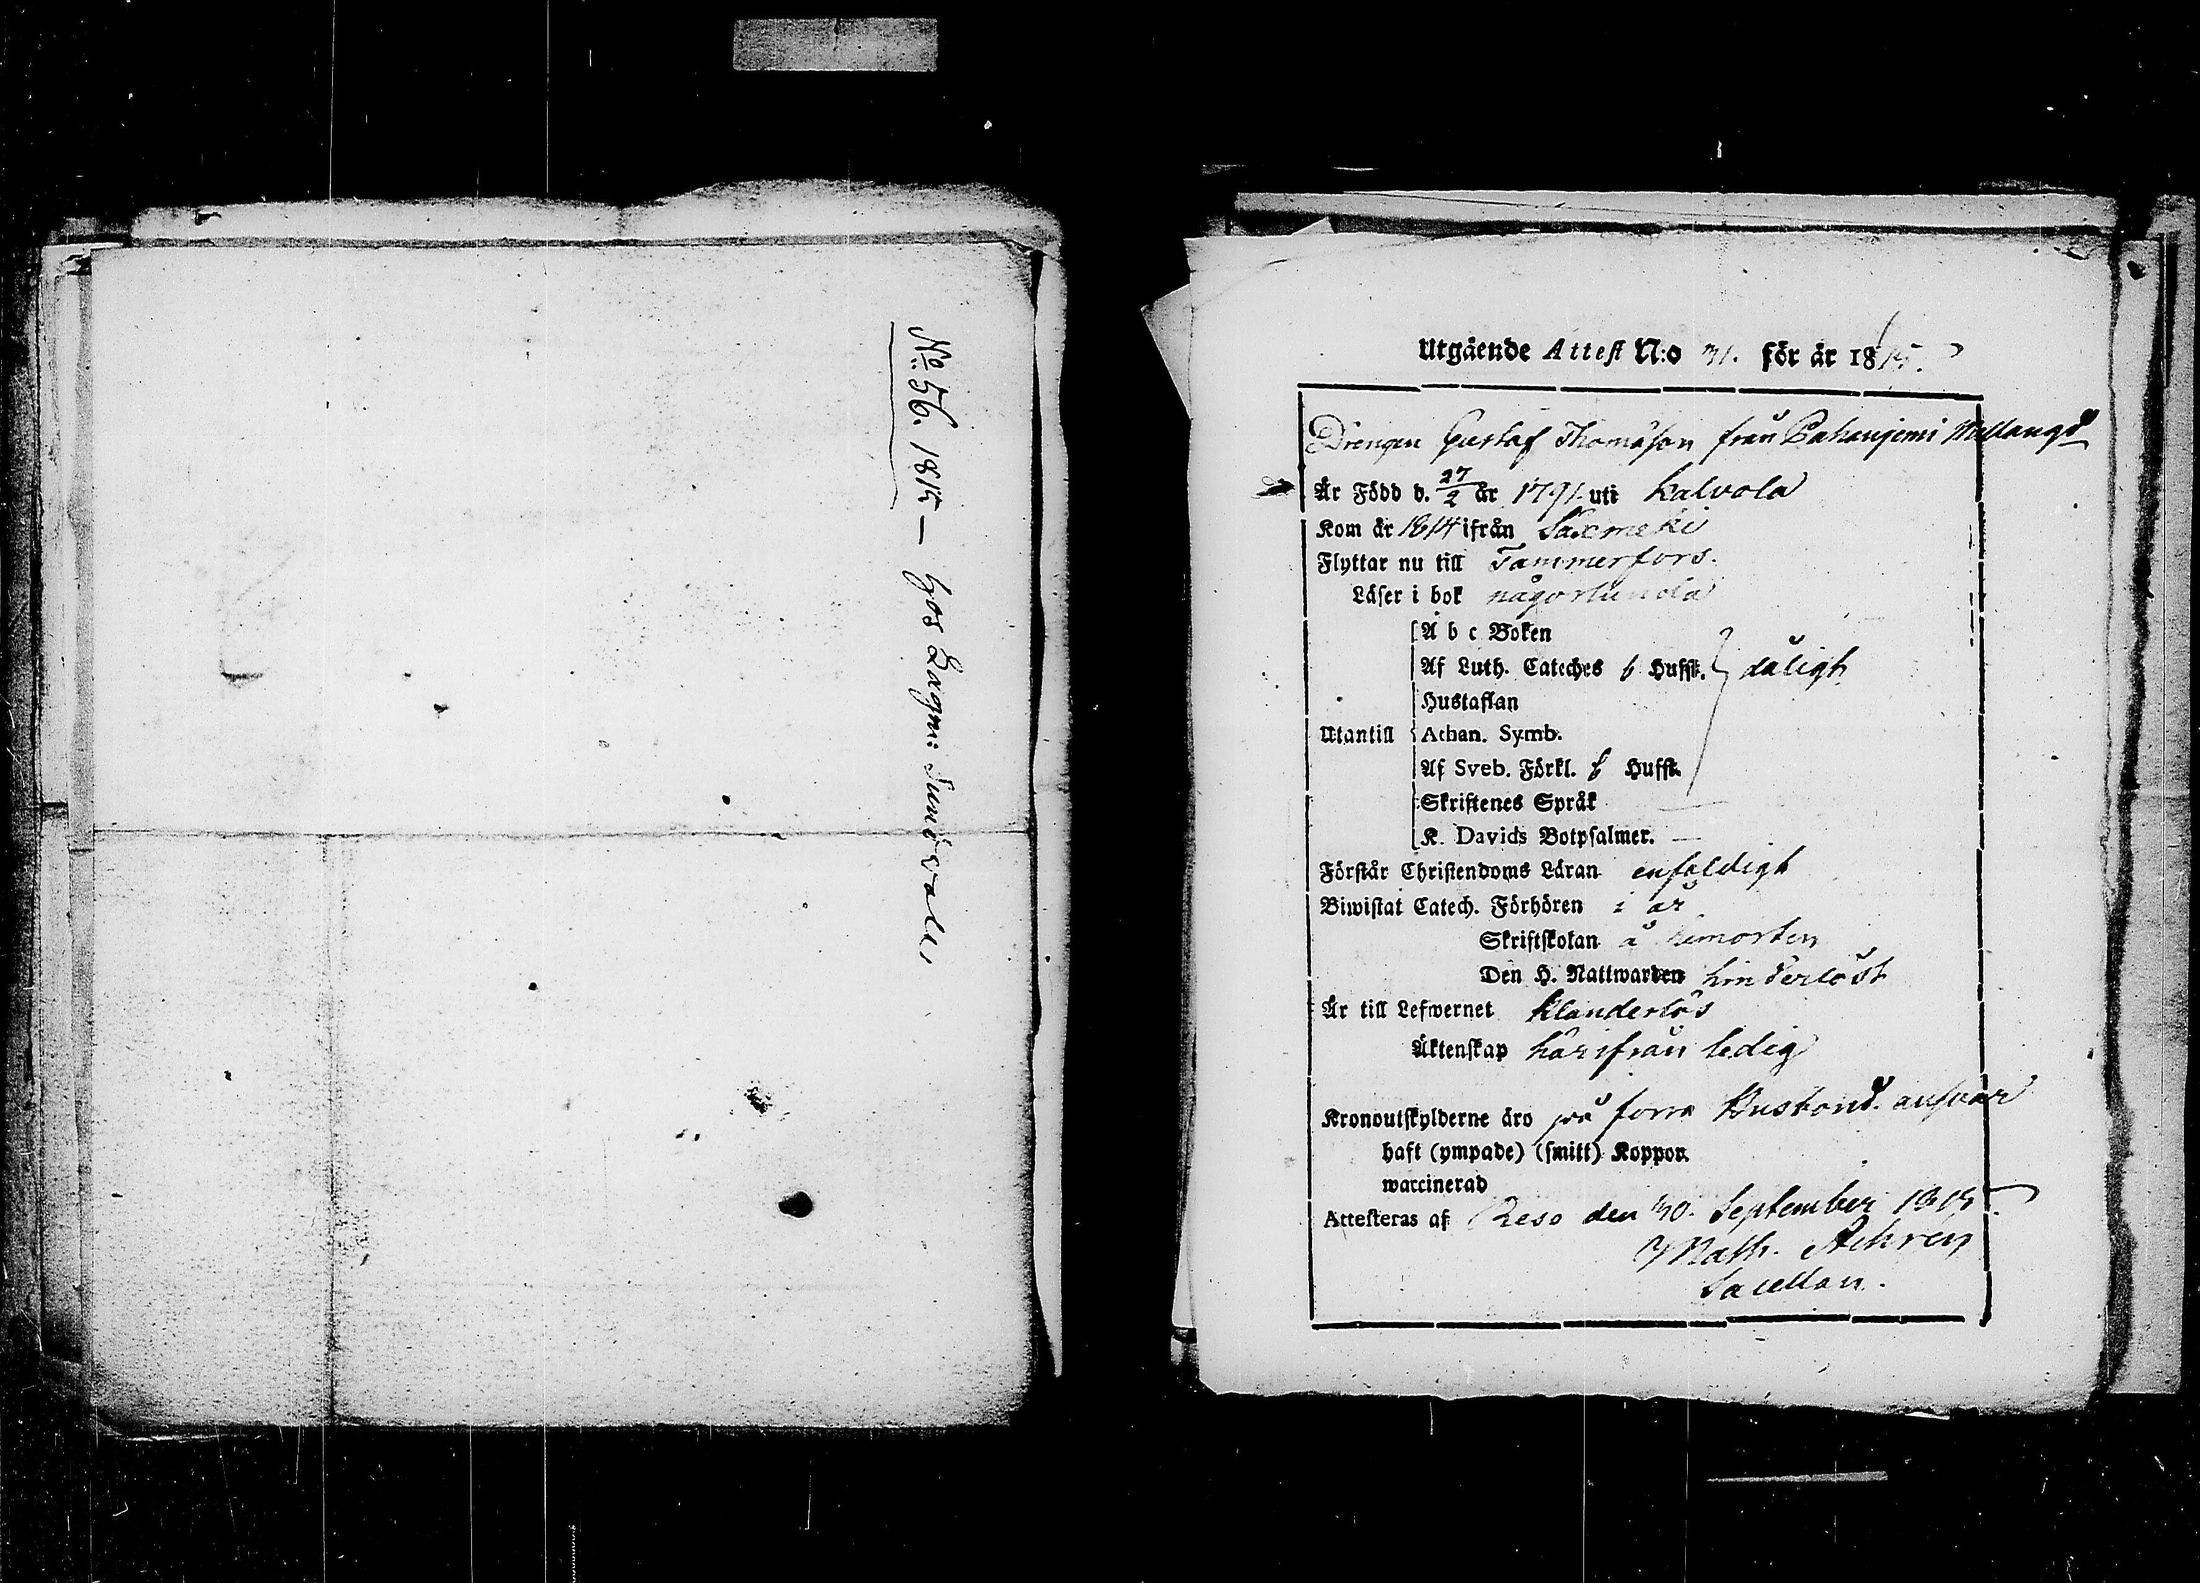 No 56. 1815 — hos Lagm: Sunévalls
Utgående Attest N:o 31. för år 1815.
Drengen Gustaf Thomasson från Pahanjemi Mellangd
Är Född d. 27/2 år 1791 uti Kalvola
Kom år 1814 ifrån Säxmeki
Flyttar nu till Tammerfors.
Läser i bok någorlunda
A b c Boken
Af Luth. Cateches 6 Hufst. dåligt
Hustaflan
Utantill Athan. Symb.
Af Sveb. Förkl. 6 Hufst.
Skriftenes Språk —
K. Davids Botpsalmer. —
Förstår Christendoms Läran enfaldigt
Biwistat Catech. Förhören i år
Skriftskolan å hemorten
Den H. Nattwarden hinderlöst
Är till Lefwernet klanderlös
Äktenskap härifrån ledig
Kronoutskylderne äro på förra Husbond. ansvar
haft (ympade) (smitt) Koppor.
waccinerad
Attesteras af Reso den 30. September 1815.
Math. Achrén
Sacellan.